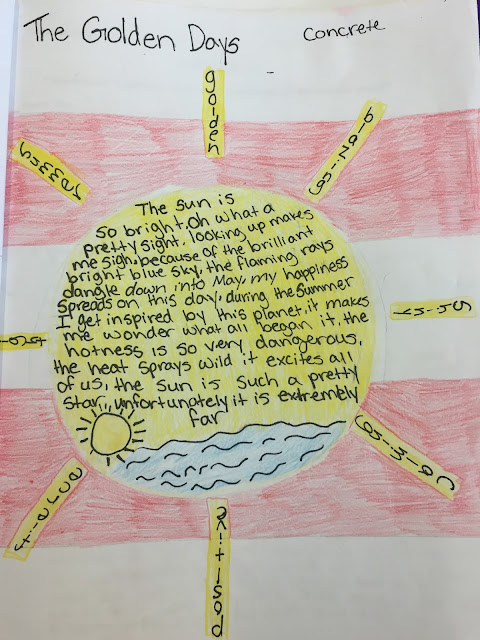 The Golden Days
Concrete
golden
blazing
summer
The sun is
so bright, oh what a
pretty sight, looking up makes
me sigh, because of the brilliant
bright blue sky, the flaming rays
dangle down into May, my happiness
spreads on this day, during the summer
I get inspired by this planet, it makes
me wonder what all began it, the
hotness is so very dangerous,
the heat sprays wild it excites all
of us, the sun is such a pretty
star, unfortunately it is extremely
far
shiny
calming
positive